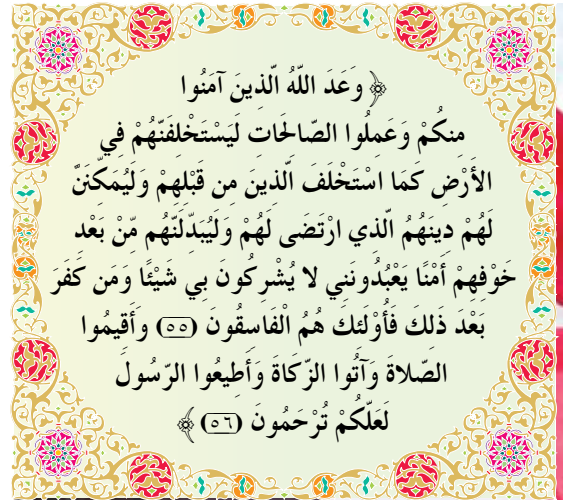 ﴿ وَعَدَ اللَّهُ الَّذِينَ آمَنُوا
مِنكُمْ وَعَمِلُوا الصَّالِحَاتِ لَيَسْتَخْلِفَنَّهُمْ فِي
الأَرْضِ كَمَا اسْتَخْلَفَ الَّذِينَ مِن قَبْلِهِمْ وَلَيُمَكِّنَنَّ
لَهُمْ دِينَهُمُ الَّذِي ارْتَضَى لَهُمْ وَلَيُبَدِّلَنَّهُم مِّنْ بَعْدِ
خَوْفِهِمْ أَمْنًا يَعْبُدُونَنِي لا يُشْرِكُونَ بِي شَيْئًا وَمَن كَفَرَ
بَعْدَ ذَلِكَ فَأُوْلَئِكَ هُمُ الْفَاسِقُونَ (٥٥) وَأَقِيمُوا
الصَّلاةَ وَآتُوا الزَّكَاةَ وَأَطِيعُوا الرَّسُولَ
لَعَلَّكُمْ تُرْحَمُونَ (٥٦) ﴾